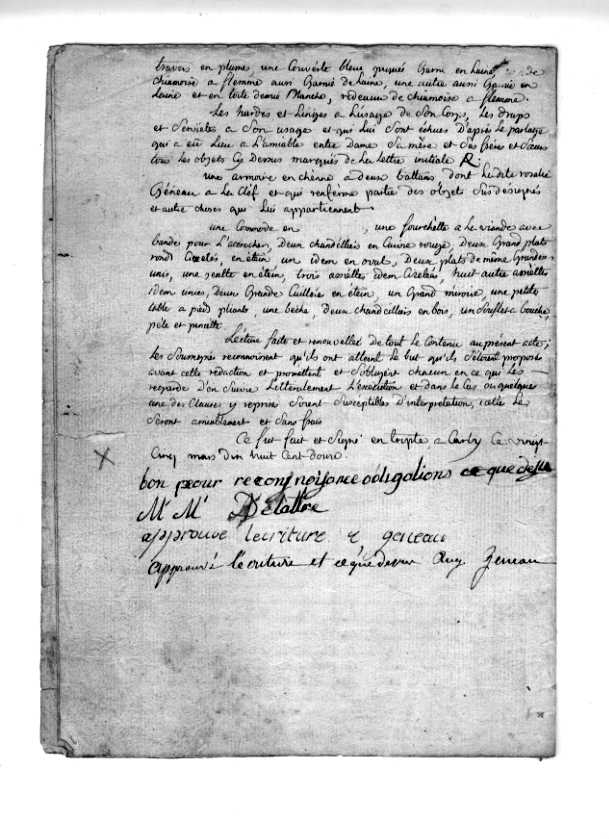 traver en plume une Couverte bleux piquée Garni en Laine, de
chiamoise a flemme aussi Garnie de Laine, une autre aussi Garnie en
Laine et en toile demie Blanche, redeaux de chiamoise a flemme.
Les hardes et Linges a L'usage de Son Corps, Les draps
et Servietes a Son usage et qui Lui Sont échues D'après Le partage
qui a eu Lieu a L'amiable entre Dame Sa mère et Ses frères et Sœurs
tous Les objets Cy dessus marqués de La Lettre initiale R
une armoire en chêne a deux battans dont La dite rosalie
Géneau a La Clef et qui renferme partie des objets Susdesignés
et autre choses qui Lui appartiennent
une Commode en , une fourchette a la viande avec
bandes pour L'accrocher, deux chandelliers en Cuivre rouge, deux Grand plats
rond Cizelés, en étain un idem en oval, Deux plats de même Grandeur
unis, une en étein, trois assiettes idem Cizelées, huit autre assiettes
idem unies, deux Grande Cuillere en étein, un Grand miroire, une petite
table a pieds pliants, une beche, deux chandelliers en bois, un Souflet a bouche,
péle et pincette
Lecture faite et renouvellée de tout Le Contenu au présent acte;
Les Soussignés reconnoissent qu'ils ont atteint Le but qu'ils S'étoient proposé
avant cette rédaction et promettent et S'obligent chacun en ce qui Les
regarde D'en Suivre Litteralement L'éxécution et dans le Cas ou quelques
une des Clauses y reprise Seroient Susceptibles D'interpretation, cela Se
Seront amiablement et Sans frais
Ce fut fait et Signé en triple a Carly Le vingt
Cinq mars dix huit Cent douze.
bon pour reconnoisance obligations ce que dessu
M M Delattre
approuve lecriture r geneau
approuvé l'ecriture et ce que dessus Geneau